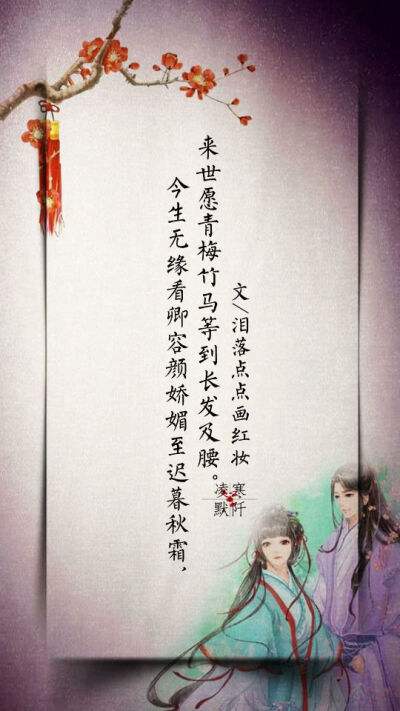 今生无缘看卿容颜娇媚至迟暮秋霜，
来世愿青梅竹马等到长发及腰。
文/泪落点点画红妆
凌寒
默阡